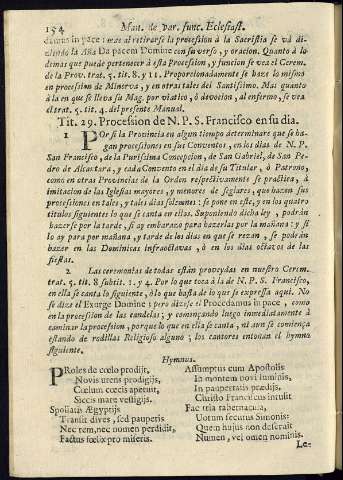 154 Man. de var. func. Eclesiast.
damus in pace : mas al retirarse la procession à la Sacristia se và di-
ziendo la Aña Da pacem Domine con su verso, y oracion. Quanto à lo
demas que puede pertenecer à esta Procession, y funcion se vea el Cerem.
de la Prov. trat. 5. tit. 8. y 11. Proporcionadamente se haze lo mismo
en procession de Minerva, y en otras tales del Santissimo. Mas quanto
à la en que se lleva su Mag. por viatico, ò devocion, al enfermo, se vea
el trat. 5. tit. 4. del presente Manual.
Tit. 29. Procession de N. P. S. Francisco en su dia.
1 POr si la Provincia en algun tiempo determinare que se ha-
gan processiones en sus Conventos, en los dias de N. P.
San Francisco, de la Purissima Concepcion, de San Gabriel, de San Pe-
dro de Alcantara, y cada Convento en el dia de su Titular, ò Patrono,
como en otras Provincias de la Orden respectivamente se practica, à
imitacion de las Iglesias mayores, y menores de seglares, que hazen sus
processiones en tales, y tales dias solemnes : se pone en este, y en los quatro
titulos siguientes lo que se canta en ellas. Suponiendo dicha ley, podràn
hazerse por la tarde, si ay embarazo para hazerlas por la mañana : y si
lo ay para por mañana, y tarde de los dias en que se rezan, se podràn
hazer en las Dominicas infraoctavas, ò en los dias octavos de las
fiestas.
2 Las ceremonias de todas estàn proveydas en nuestro Cerem.
trat. 5. tit. 8. subtit. 1. 74. Por lo que toca à la de N. P. S. Francisco,
en ella se canta lo siguiente, ò lo que basta de lo que se expressa aqui. No
se dize el Exurge Domine : pero dizese el Procedamus in pace, como
en la procession de las candelas ; y començando luego inmediatamente à
caminar la procession, porque lo que en ella se canta, ni aun se comiença
estando de rodillas Religioso alguno ; los cantores entonan el hymno
siguiente.
Hymnus.
PRoles de cœlo prodijt,
Novis utens prodigijs,
Cœlum cœcis aperuit,
Siccis mare vestigijs.
Spoliatis Ægyptijs
Transit dives, sed pauperis
Nec rem, nec nomen perdidit,
Factus fœlix pro miseris.
Assumptus cum Apostolis
In montem novi luminis,
In paupertatis prædijs,
Christo Franciscus intulit
Fac tria tabernacula,
Votum secutus Simonis:
Quem hujus non deserait
Numen, vel omen nominis.
Le-